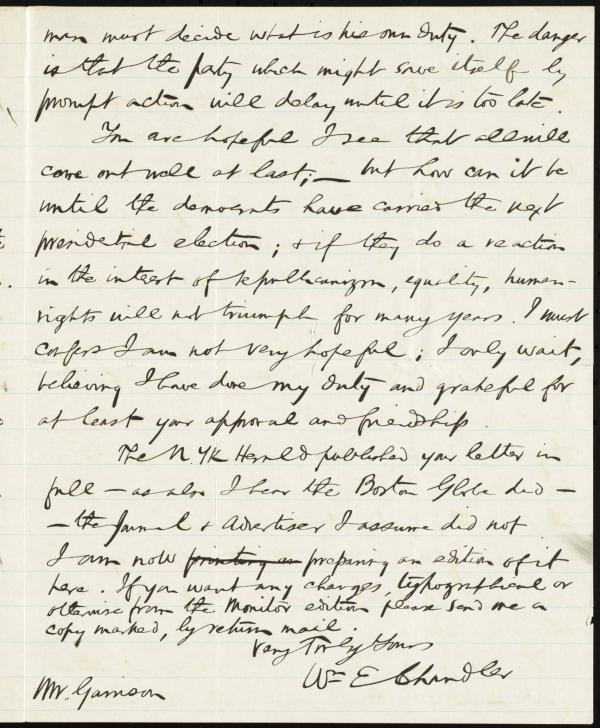 man must decide what is his own duty. The danger
is that the party which might save itself by
prompt action will delay until it is too late.
You are hopeful I see that all will
come out well at last; — but how can it be
until the democrats have carried the next
presidential election; & if they do a reaction
in the interest of republicanism, equality, human-
rights will not triumph for many years. I must
confess I am not very hopeful; I only wait,
believing I have done my duty and grateful for
at least your approval and friendship.
The N. Yk Herald published your letter in
full — as also I hear the Boston Globe did —
— the Journal & Advertiser I assume did not
I am now printing an preparing an edition of it
here. If you want any changes, typographical or
otherwise from the Monitor edition please send me a
copy marked, by return mail.
Very Truly Yours
Wm E Chandler
Mr. Garrison